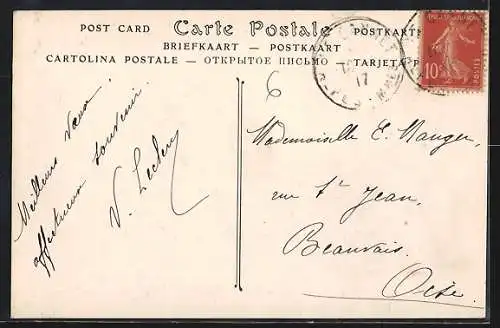 POST CARD Carte Postale POSTKARTE
BRIEFKAART — POSTKAART
CARTOLINA POSTALE — ОТКРЫТОЕ ПИСЬМО TARJETA P
17
10
POSTES
6
Meilleurs Vœux
affectueux souvenir
V. Leclerc
Mademoiselle E. Mauger,
rue St Jean,
Beauvais.
Oise.